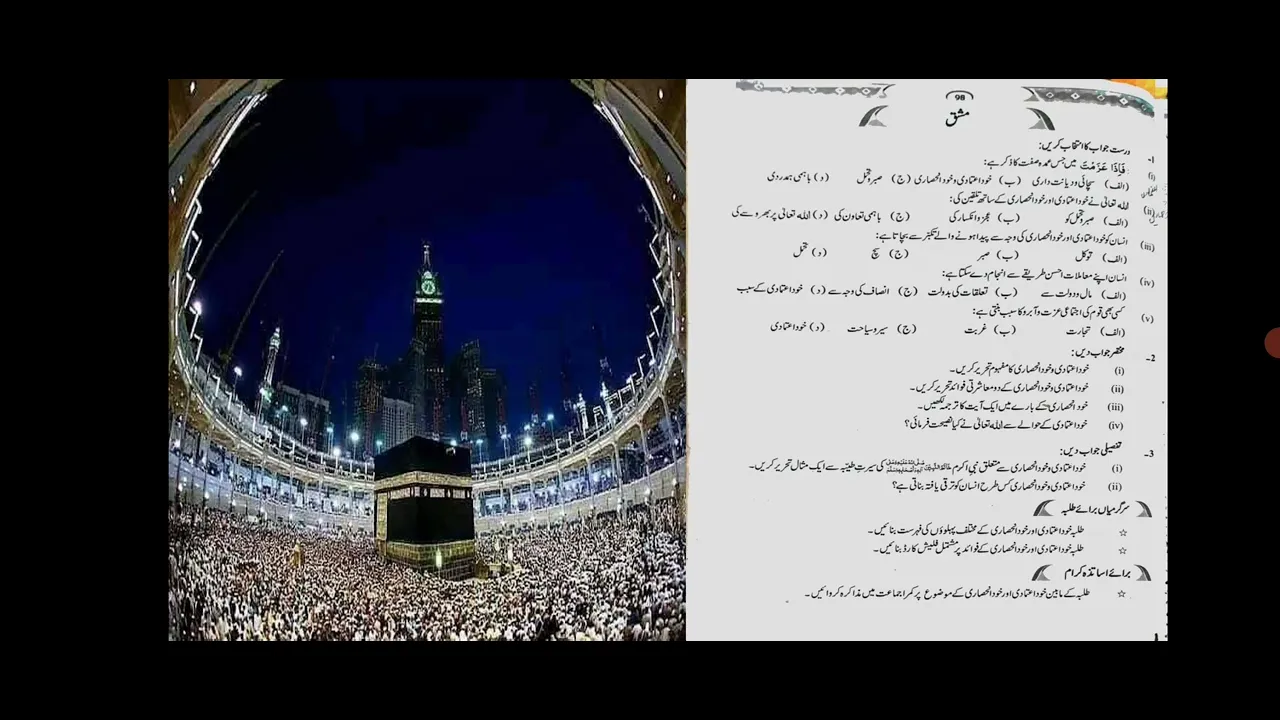 98
مشق
1- درست جواب کا انتخاب کریں:
(i) فَاِذَا عَزَمْتَ میں جس عمدہ صفت کا ذکر ہے:
(الف) سچائی و دیانت داری (ب) خود اعتمادی و خود انحصاری (ج) صبر و تحمل (د) باہمی ہمدردی
(ii) اللہ تعالیٰ نے خود اعتمادی اور خود انحصاری کے ساتھ تلقین کی:
(الف) صبر و تحمل کو (ب) عجز و انکسار کی (ج) باہمی تعاون کی (د) اللہ تعالیٰ پر بھروسے کی
(iii) انسان کو خود اعتمادی اور خود انحصاری کی وجہ سے پیدا ہونے والے تکبر سے بچاتا ہے:
(الف) توکل (ب) صبر (ج) سچ (د) تحمل
(iv) انسان اپنے معاملات احسن طریقے سے انجام دے سکتا ہے:
(الف) مال و دولت سے (ب) تعلقات کی بدولت (ج) انصاف کی وجہ سے (د) خود اعتمادی کے سبب
(v) کسی بھی قوم کی اجتماعی عزت و آبرو کا سبب بنتی ہے:
(الف) تجارت (ب) غربت (ج) سیر و سیاحت (د) خود اعتمادی
2- مختصر جواب دیں:
(i) خود اعتمادی و خود انحصاری کا مفہوم تحریر کریں۔
(ii) خود اعتمادی و خود انحصاری کے دو معاشرتی فوائد تحریر کریں۔
(iii) خود انحصاری کے بارے میں ایک آیت کا ترجمہ لکھیں۔
(iv) خود اعتمادی کے حوالے سے اللہ تعالیٰ نے کیا نصیحت فرمائی؟
3- تفصیلی جواب دیں:
(i) خود اعتمادی و خود انحصاری سے متعلق نبی اکرم کی سیرتِ طیبہ سے ایک مثال تحریر کریں۔
(ii) خود اعتمادی و خود انحصاری کس طرح انسان کو ترقی یافتہ بناتی ہے؟
سرگرمیاں برائے طلبہ
☆ طلبہ خود اعتمادی اور خود انحصاری کے مختلف پہلوؤں کی فہرست بنائیں۔
☆ طلبہ خود اعتمادی اور خود انحصاری کے فوائد پر مشتمل فلیش کارڈ بنائیں۔
برائے اساتذہ کرام
☆ طلبہ کے مابین خود اعتمادی اور خود انحصاری کے موضوع پر کمرا جماعت میں مذاکرہ کروائیں۔